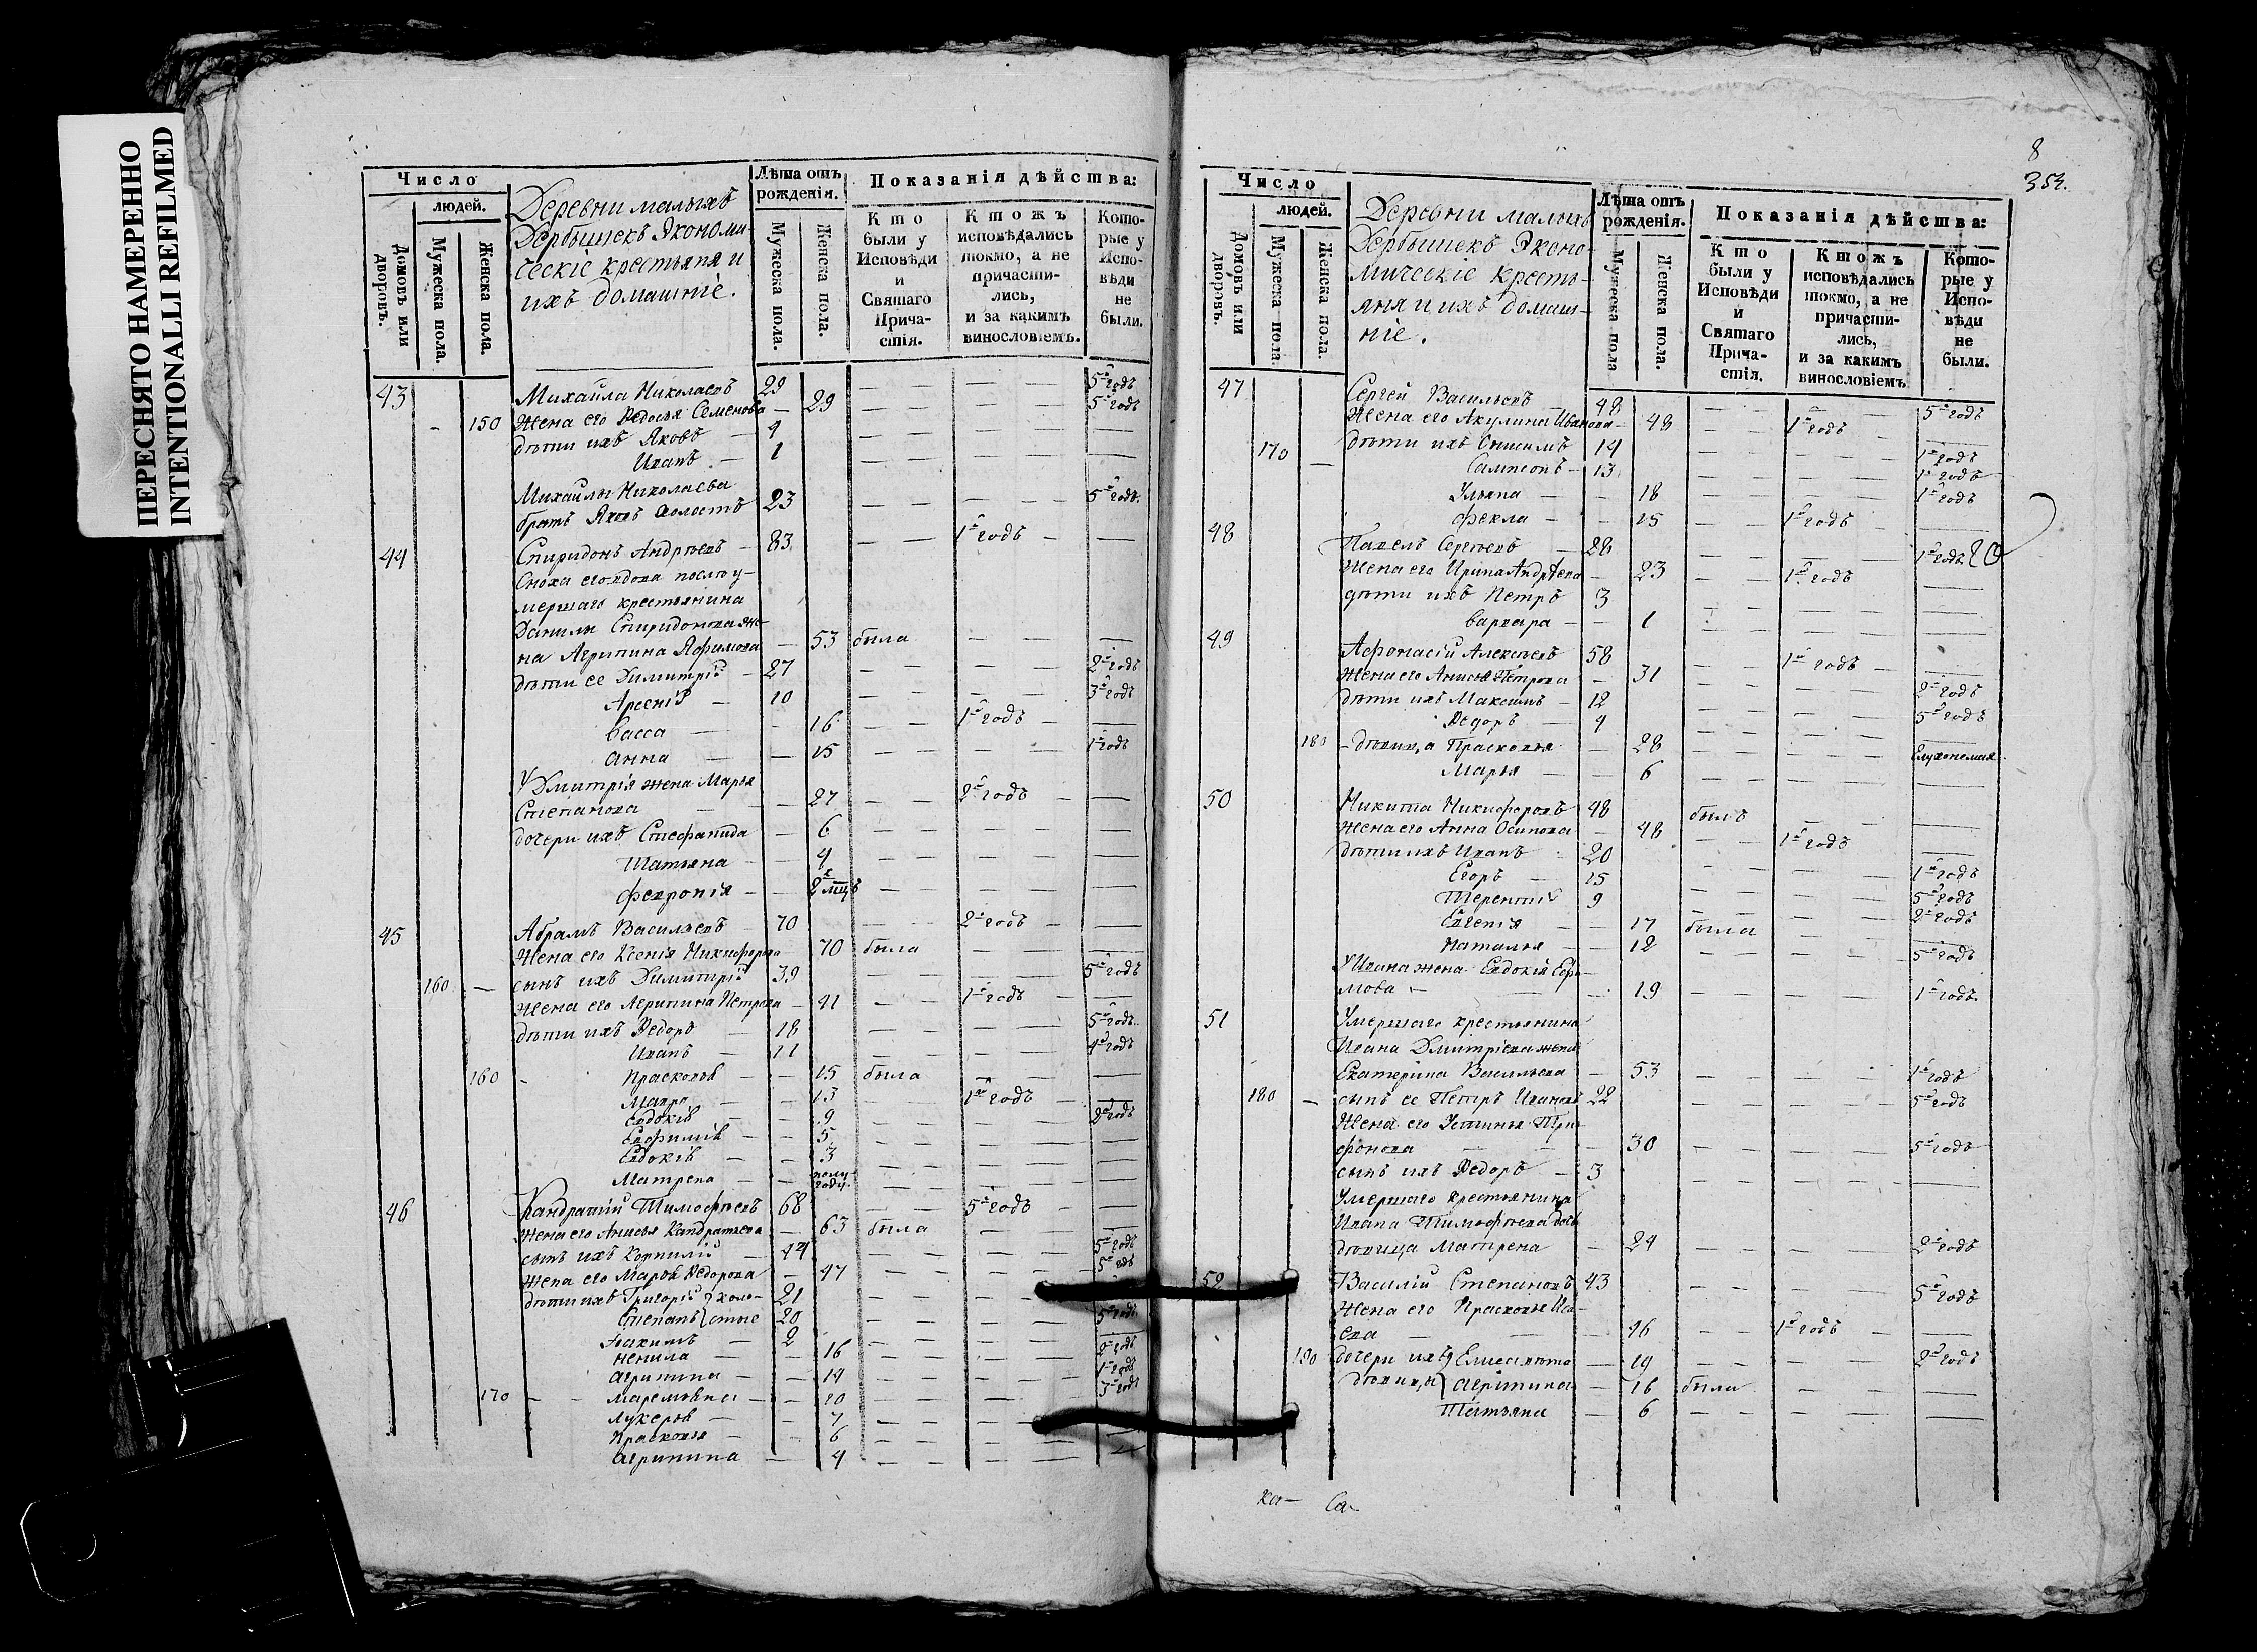 ПЕРЕСНЯТО НАМЕРЕННО
INTENTIONALLI REFILMED
Число
людей.
Домовъ или дворовъ.
Мужеска пола.
Женска пола.
Деревни малыхъ
Дербышекъ Экономи-
ческіе крестьяня и
ихъ домашніе.
Лѣта отъ рожденія.
Мужеска пола.
Женска пола.
Показанія дѣйства:
Кто были у Исповѣди и Святаго Прича-стія.
Ктожъ исповѣдались токмо, а не причасти-лись, и за какимъ винословіемъ.
Кото-рые у Испо-вѣди не были.
43 Михайла Николаевъ 29 — — — 5й годъ
Жена его Ѳедосья Семенова — 29 — — — 5й годъ
150 дѣти ихъ Яковъ — 4 — — — —
Иванъ — 1 — — — —
Михайлы Николаева
братъ Яковъ холостъ 23 — — — 5й годъ
44 Спиридонъ Андрѣевъ — 83 — 1й годъ — —
Сноха его вдова послѣ у-
мершаго крестьянина
Данилы Спиридонова же-
на Агрипина Яфимова — 53 была — — —
дѣти ее Димитрій — 27 — — — 2й годъ
Арсеній — 10 — — — 3й годъ
Васса — — 16 — — 1й годъ — —
Анна — — 15 — — — 1й годъ
У Дмитрія жена Марья
Степанова — 27 — — 2й годъ — —
дочери ихъ Стефанида — 6 — — — —
Татьяна — — 4 — — — —
Феврονія — — 2х мцъ — — — —
45 Абрамъ Васильевъ — 70 — — 2й годъ — —
Жена его Ксенія Никифорова — 70 была — — —
160 — сынъ ихъ Димитрій 39 — — — 5й годъ
Жена его Агрипина Петрова — 41 — — 1й годъ — —
дѣти ихъ Ѳедоръ — 18 — — — 5й годъ
Иванъ — 11 — — — 4й годъ
160 - Прасковья — — 15 была — — —
Мавра — — 13 — 1й годъ — —
Евдокія — — 9 — — — 2й годъ
Евфимія — — 5 — — — —
Евдокія — — 3 — — — —
Матрена — — полу году — — — —
46 Кандратій Тимофѣевъ 68 — — 5й годъ — —
Жена его Анисья Кандратьева — 63 была — — —
сынъ ихъ Корнилій — 44 — — — 5й годъ
Жена его Марья Ѳедорова — 47 — — — 5й годъ
дѣти ихъ Григорій } холо- 21 — — —
Степанъ } стые 20 — — — 5й годъ
2 — — —
Ненила — — 16 — — — 2й годъ
Агрипина — — 14 — — — 1й годъ
170 - Маремьяна — — 10 — — — 3й годъ
Лукерья — — 7 — — —
Прасковья — — 6 — — — —
Агрипина — 4 — — — —
8
353.
Число
людей.
Домовъ или дворовъ.
Мужеска пола.
Женска пола.
Деревни малыхъ
Дербышекъ Эконо-
мическіе кресть-
яня и ихъ домаш-
ніе.
Лѣта отъ рожденія.
Мужеска пола
Женска пола.
Показанія дѣйства:
Кто были у Исповѣди и Святаго Прича-стія.
Ктожъ исповѣдались токмо, а не причасти-лись, и за какимъ винословіемъ
Кото-рые у Испо-вѣди не были.
47 Сергей Васильевъ 48 — — — 5й годъ
Жена его Акулина Иванова — 48 — — 1й годъ — —
170 — дѣти ихъ Онисимъ 14 — — — 1й годъ
Сампсонъ — 13 — — — 1й годъ
Ульяна — — 18 — — — 1й годъ
Фекла — — 15 — — 1й годъ — —
48 Павелъ Сергѣевъ — 28 — — — 1й годъ
Жена его Ирина Андрѣева — 23 — — 1й годъ — —
дѣти ихъ Петръ 3 — — — —
Варвара — — 1 — — — —
49 Афонасій Алексѣевъ 58 — — 1й годъ — —
Жена его Анисья Петрова — 31 — — — 2й годъ
дѣти ихъ Максимъ — 12 — — — 5й годъ
Ѳедоръ — 4 — — — —
180 - дѣвица Прасковья — 28 — — — Глухонемая
Марья — — 6 — — — —
50 Никита Никифоровъ 48 былъ — — —
Жена его Анна Осипова — 48 — — 1й годъ — —
дѣти ихъ Иванъ — 20 — — — 1й годъ
Егоръ — 15 — — — 5й годъ
Терентій 9 — — — 2й годъ
Евгенія — — 17 была — — —
Наталья — — 12 — — — 5й годъ
У Ивана жена Евдокія Ефи-
мова — — 19 — — — 1й годъ
51 Умершаго крестьянина
Ивана Дмитріева жена
Екатерина Васильева — 53 — — — 1й годъ
180 — сынъ ее Петръ Ивановъ 22 — — — 5й годъ
Жена его Устинья Три-
фонова — 30 — — — 5й годъ
сынъ ихъ Ѳедоръ — 3 — — — —
Умершаго крестьянина
Ивана Тимофѣева дочь
дѣвица Матрена — 24 — — — 2й годъ
52 Василій Степановъ 43 — — — 5й годъ
Жена его Прасковья Иса-
ева — — 46 — — 1й годъ — —
190 дочери ихъ } Елисавета — 19 — — — 2й годъ
дѣвицы } Агрипина — 16 была — — —
Татьяна — 6 — — — —